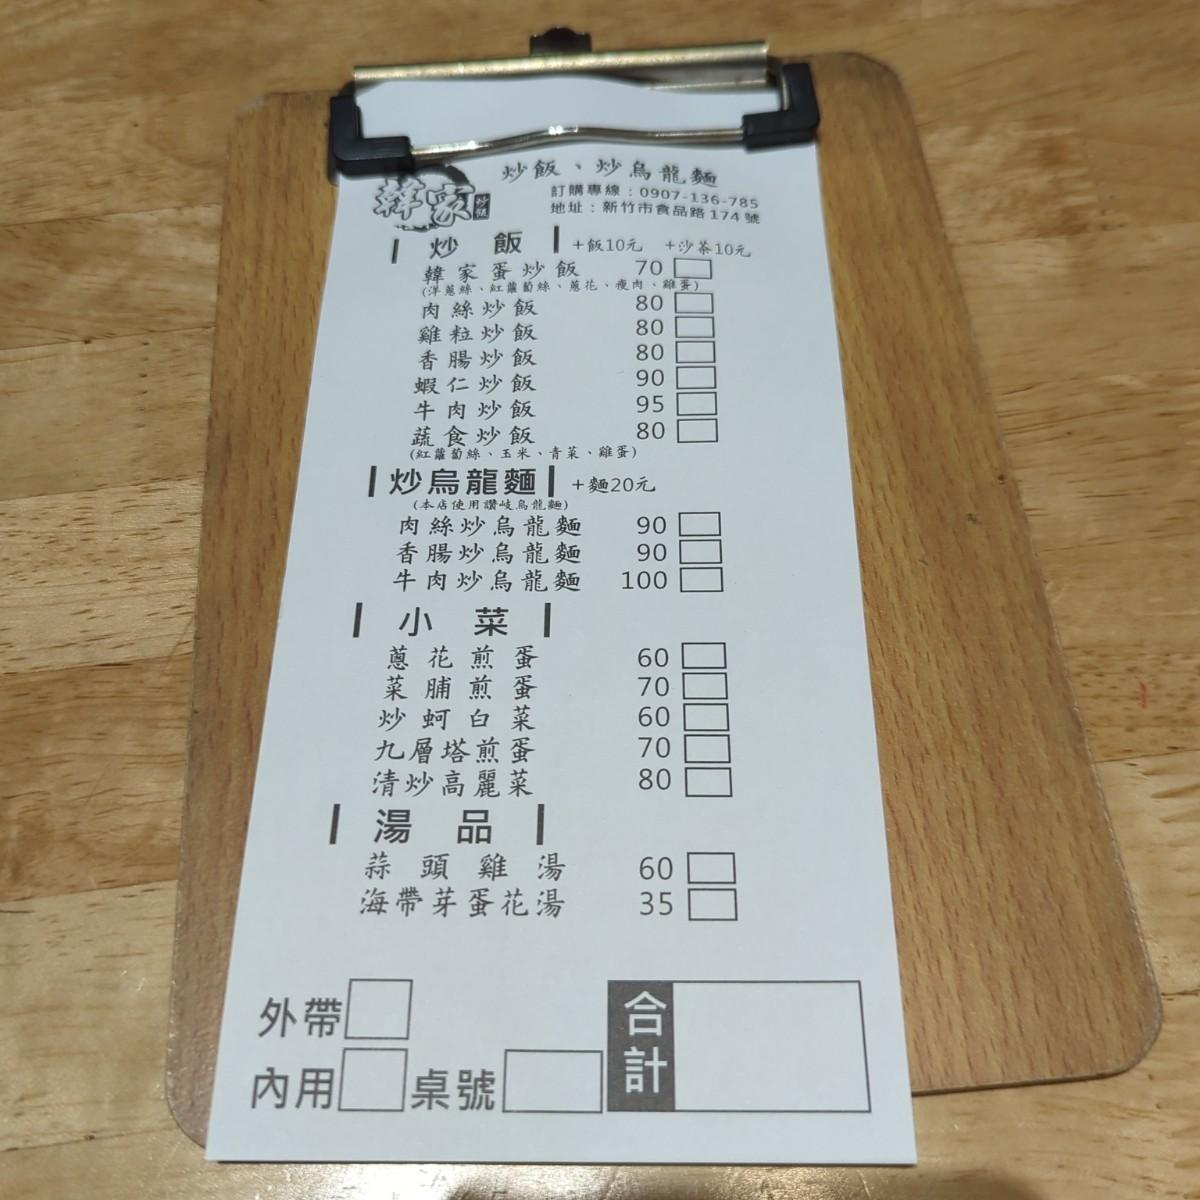 韓家炒飯
炒飯、炒烏龍麵
訂購專線：0907-136-785
地址：新竹市食品路174號
炒飯 +飯10元 +沙茶10元
韓家蛋炒飯 70
(洋蔥絲、紅蘿蔔絲、蔥花、瘦肉、雞蛋)
肉絲炒飯 80
雞粒炒飯 80
香腸炒飯 80
蝦仁炒飯 90
牛肉炒飯 95
蔬食炒飯 80
(紅蘿蔔絲、玉米、青菜、雞蛋)
炒烏龍麵 +麵20元
(本店使用讚岐烏龍麵)
肉絲炒烏龍麵 90
香腸炒烏龍麵 90
牛肉炒烏龍麵 100
小菜
蔥花煎蛋 60
菜脯煎蛋 70
炒蚵白菜 60
九層塔煎蛋 70
清炒高麗菜 80
湯品
蒜頭雞湯 60
海帶芽蛋花湯 35
外帶
內用 桌號
合計